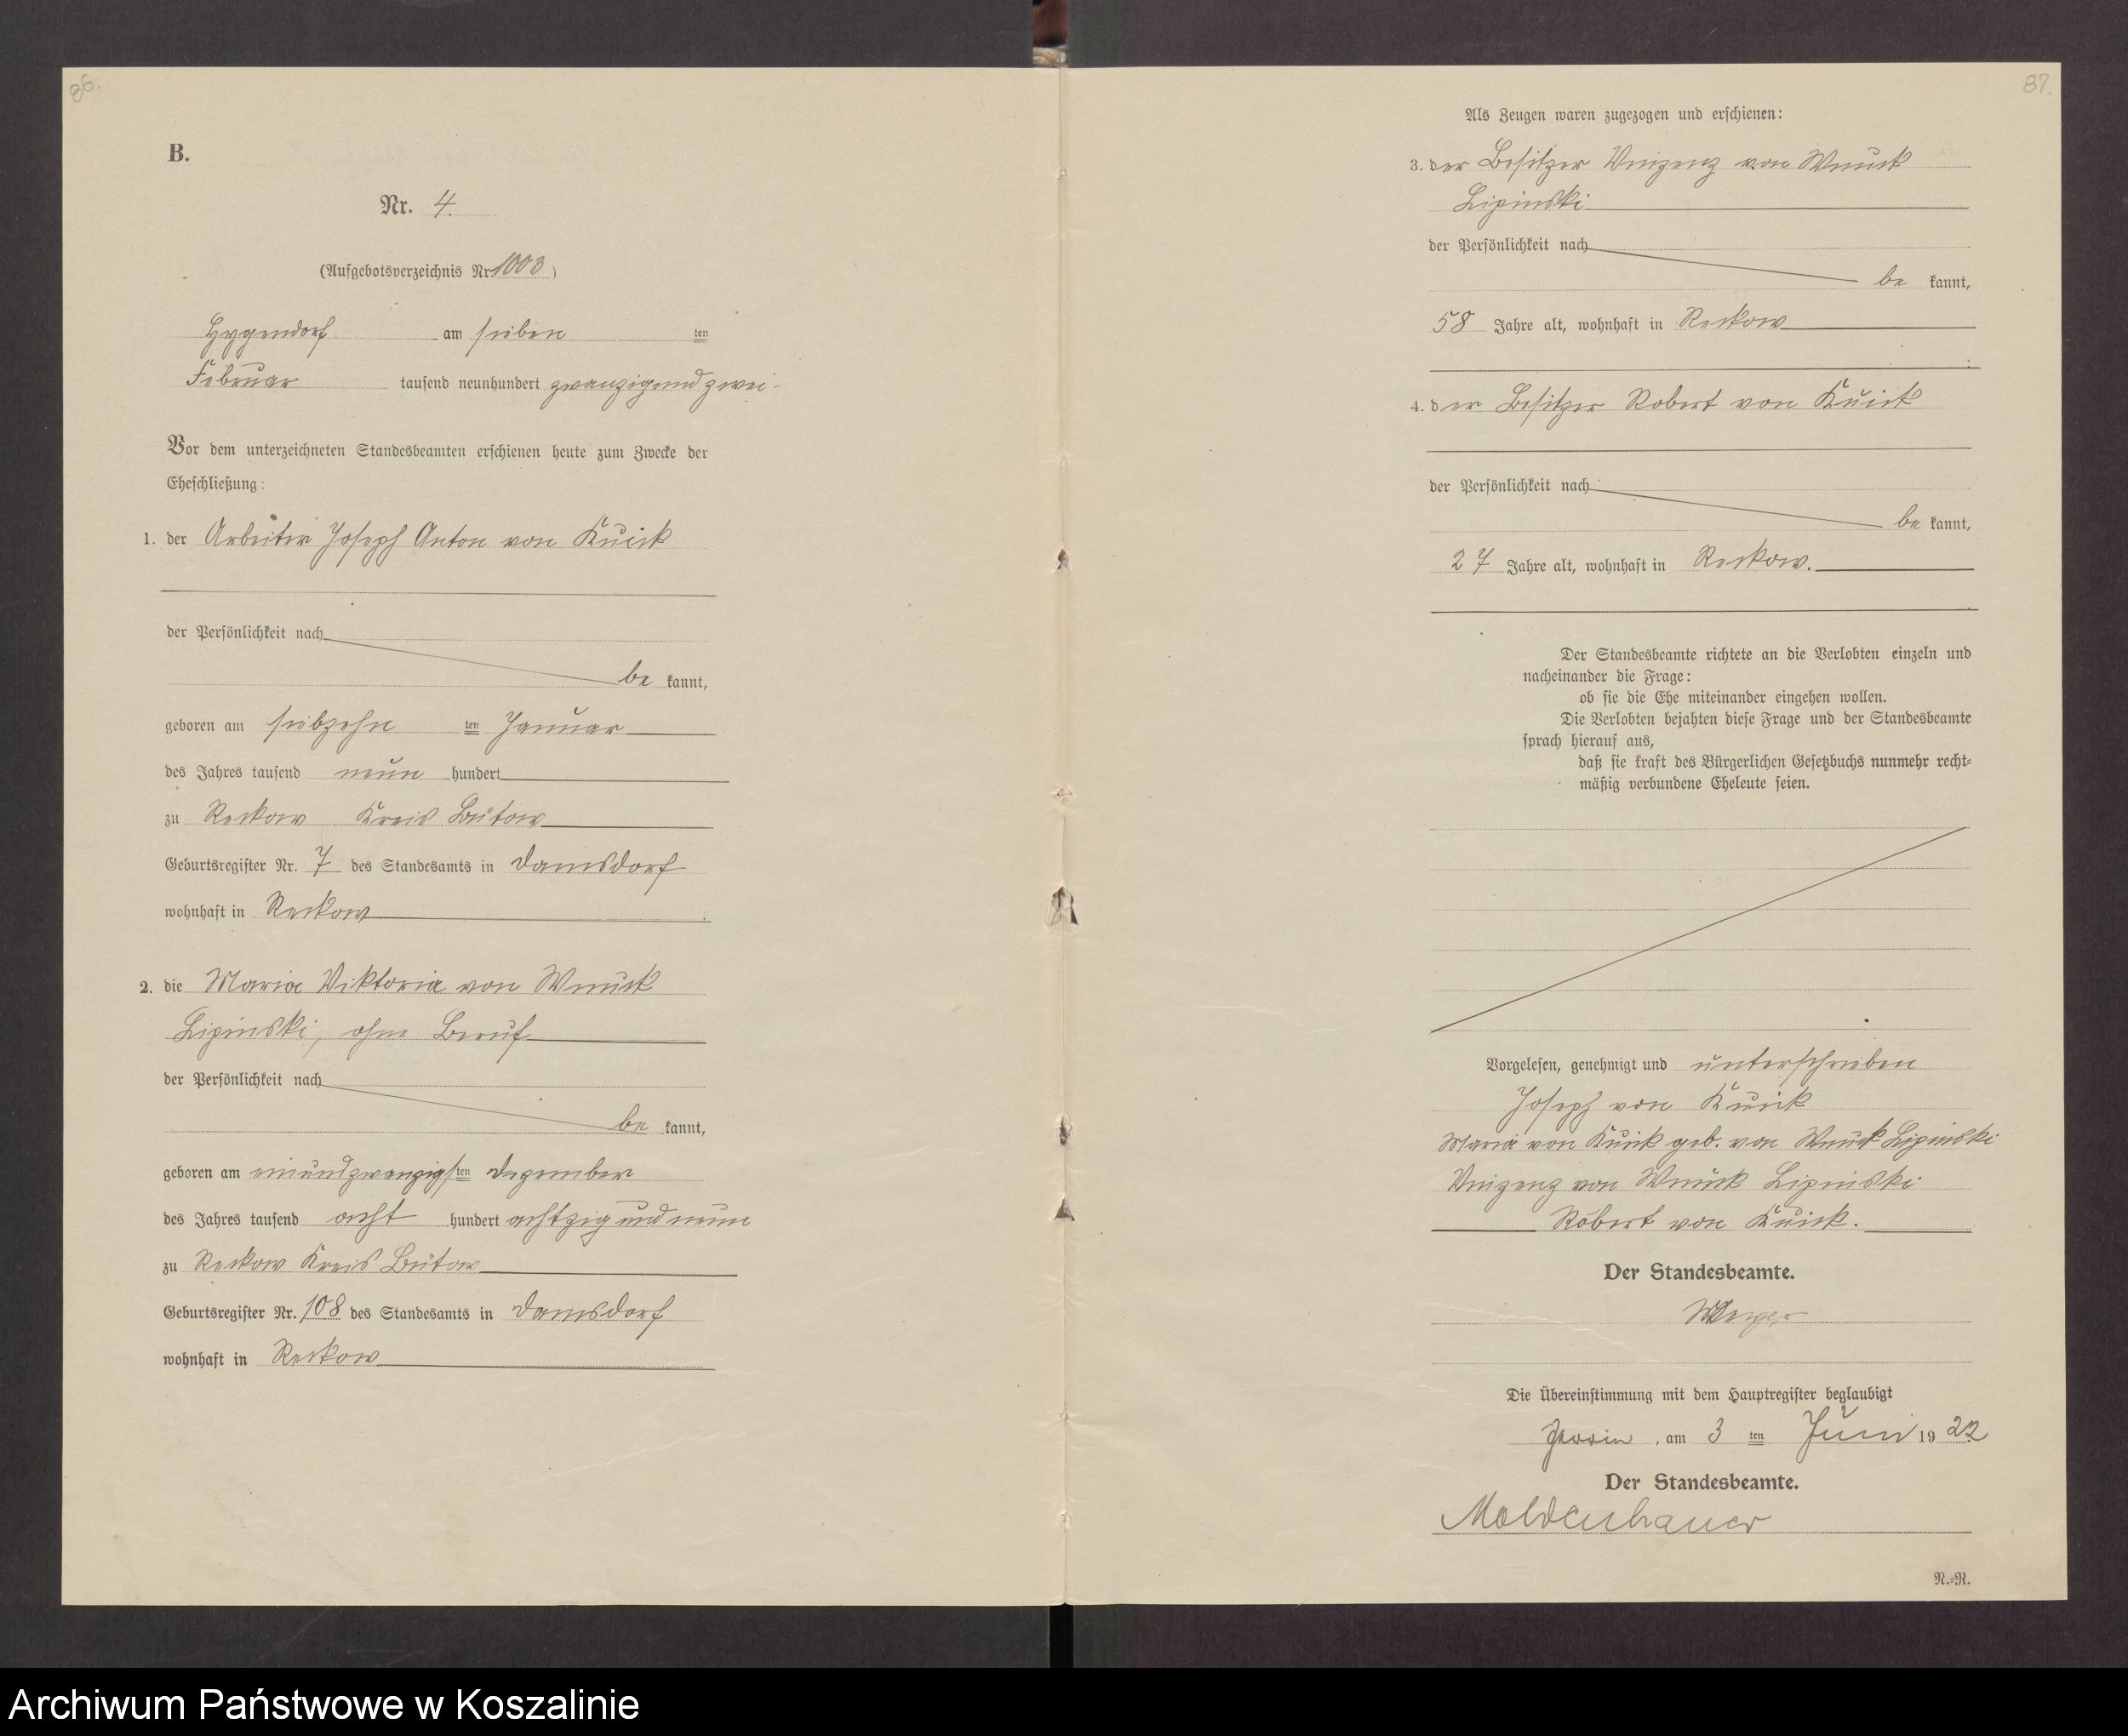 86.
B.
Nr. 4.
(Aufgebotsverzeichnis Nr. 1003)
Gygendorf am sieben ten
Februar tausend neunhundert zwanzigundzwei-
Vor dem unterzeichneten Standesbeamten erschienen heute zum Zwecke der
Eheschließung:
1. der Arbeiter Joseph Anton von Kuick
der Persönlichkeit nach
be kannt,
geboren am siebzehn ten Januar
des Jahres tausend neun hundert
zu Reckow Kreis Bütow
Geburtsregister Nr. 7 des Standesamts in Damsdorf
wohnhaft in Reckow.
2. die Maria Viktoria von Wnuck
Lipinski, ohne Beruf
der Persönlichkeit nach
be kannt,
geboren am einundzwanzigsten Dezember
des Jahres tausend acht hundert achtzig und neun
zu Reckow Kreis Bütow
Geburtsregister Nr. 108 des Standesamts in Damsdorf
wohnhaft in Reckow
87.
Als Zeugen waren zugezogen und erschienen:
3. der Besitzer Vinzenz von Wnuck
Lipinski
der Persönlichkeit nach
be kannt,
58 Jahre alt, wohnhaft in Reckow
.
4. der Besitzer Robert von Kuick
der Persönlichkeit nach
be kannt,
27 Jahre alt, wohnhaft in Reckow.
Der Standesbeamte richtete an die Verlobten einzeln und
nacheinander die Frage:
ob sie die Ehe miteinander eingehen wollen.
Die Verlobten bejahten diese Frage und der Standesbeamte
sprach hierauf aus,
daß sie kraft des Bürgerlichen Gesetzbuchs nunmehr recht-
mäßig verbundene Eheleute seien.
Vorgelesen, genehmigt und unterschrieben
Joseph von Kuick
Maria von Kuick geb. von Wnuck Lipinski
Vinzenz von Wnuck Lipinski
Robert von Kuick.
Der Standesbeamte.
Die Übereinstimmung mit dem Hauptregister beglaubigt
Jassin, am 3 ten Juni 1922
Der Standesbeamte.
Moldenhauer
N.-R.
Archiwum Państwowe w Koszalinie